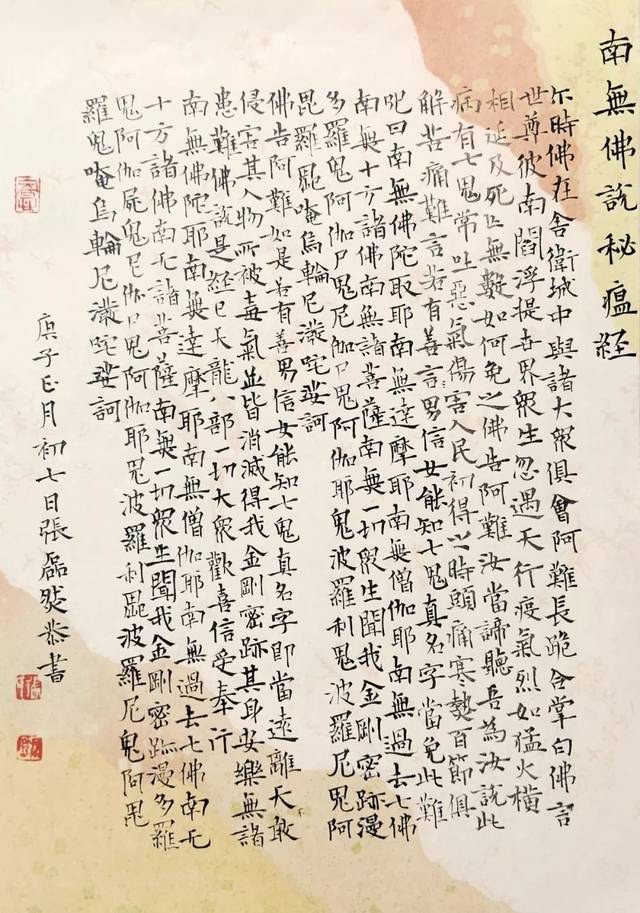 南無佛說秘瘟経
尒時佛在舍衛城中與諸大衆俱會阿難長跪合掌白佛言
世尊彼南閻浮提世界衆生忽遇天行疫氣烈如猛火橫
相延及死亡無數如何免之佛告阿難汝當諦聽吾為汝說此
病有七鬼常吐惡氣傷害人民初得之時頭痛寒熱百節俱
解苦痛難言若有善言男信女能知七鬼真名字當免此難
呪曰南無佛陀取耶南無達摩耶南無僧伽耶南無過去七佛
南無十方諸佛南無諸菩薩南無一切衆生聞我金剛密跡漫
多羅鬼阿伽尸鬼尼伽尸鬼阿伽耶鬼波羅利鬼波羅尼鬼阿
毘羅鬼唵烏輪尼潵咤娑訶
佛告阿難如是若有善男信女能知七鬼真名字即當遠離大敢
侵害其人物所被毒氣並皆消滅得我金剛密跡其身安樂無諸
患難佛說是経已天龍八部一切大衆歡喜信受奉行
南無佛陀耶南無達摩耶南無僧伽耶南無過去七佛南无
十方諸佛南无諸菩薩南無一切衆生聞我金剛密跡漫多羅
鬼阿伽屍鬼尼伽尸鬼阿伽耶鬼波羅利鬼波羅尼鬼阿毘
羅鬼唵烏輪尼潵咤娑訶
庚子正月初七日張磊焱恭書